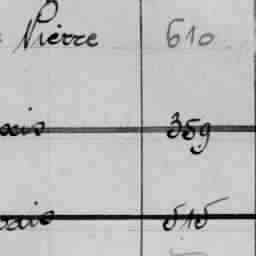 Pierre 610
ais 359
vais 515